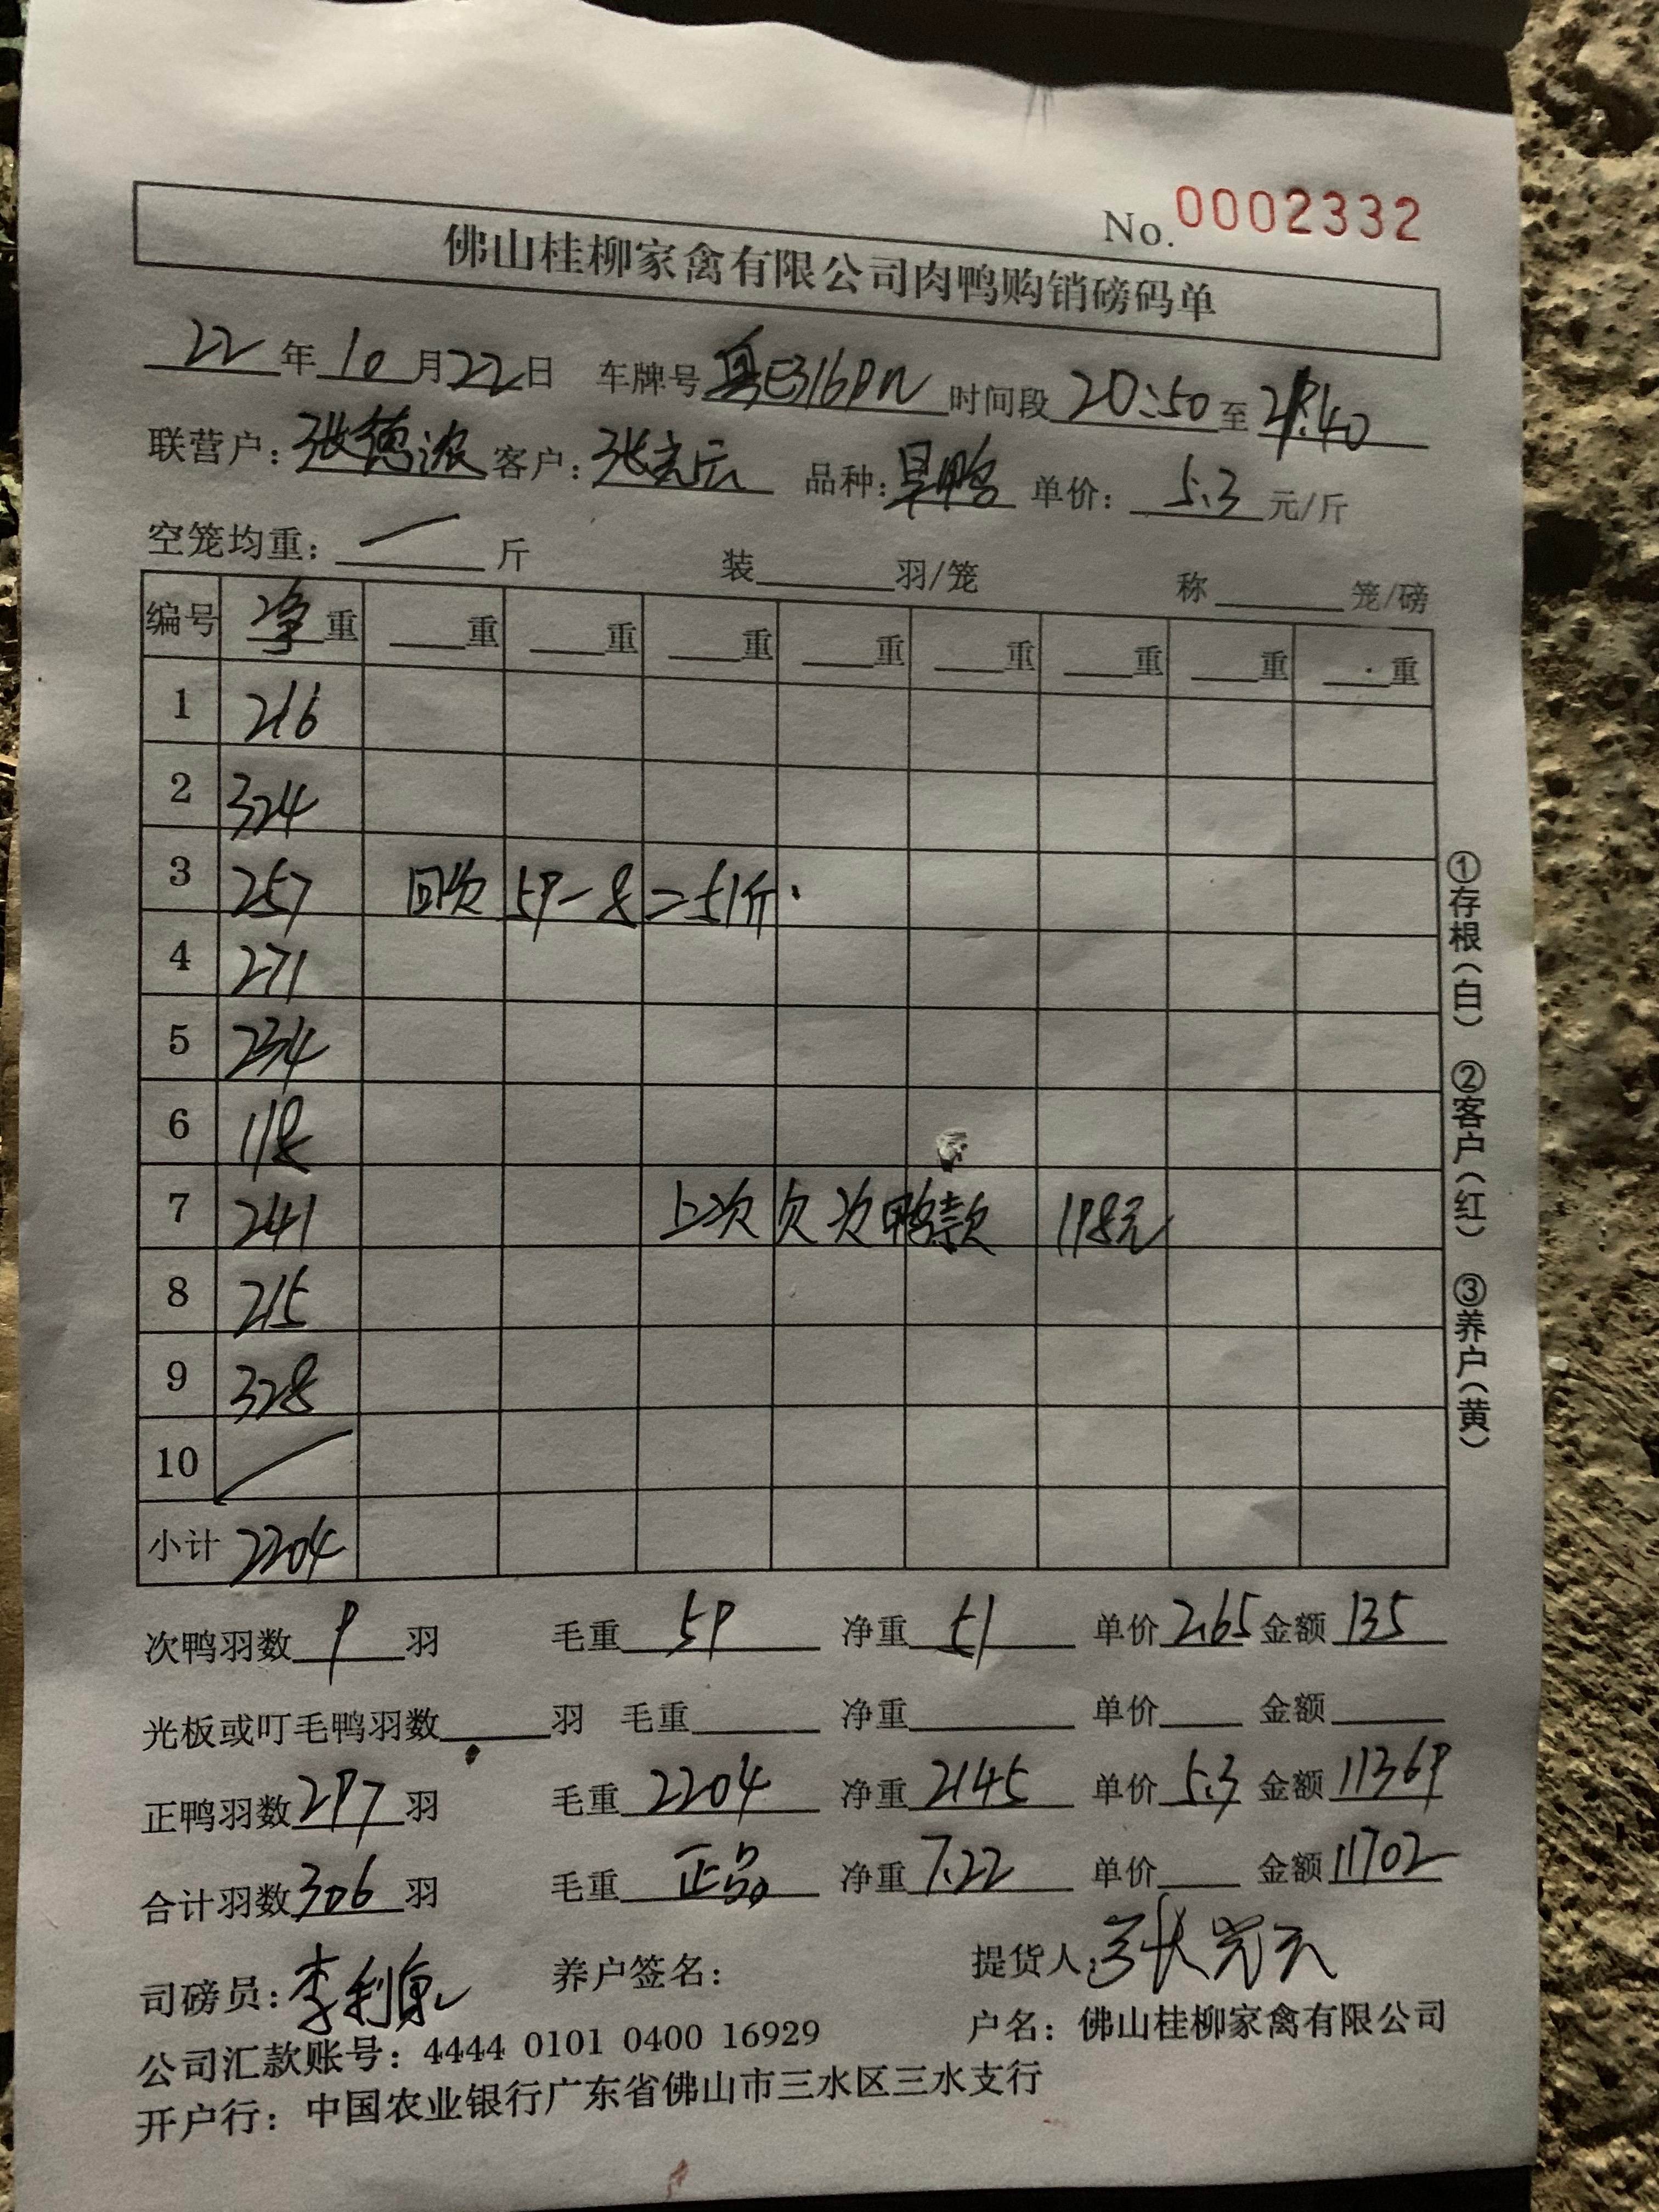 No. 0002332
佛山桂柳家禽有限公司肉鸭购销磅码单
22年10月22日 车牌号粤E316PN 时间段20:50至21:40
联营户:张德浓 客户:张光云 品种:旱鸭 单价: 5.3元/斤
空笼均重: 一 斤 装 羽/笼 称 笼/磅
编号 净重 重 重 重 重 重 重 重 重
1 216
2 324
3 257 回次 59-8=51斤.
4 271
5 234
6 118
7 241 上次欠次鸭款 198元
8 215
9 328
10
小计 2204
次鸭羽数9羽 毛重59 净重51 单价2.65 金额135
光板或叮毛鸭羽数 羽 毛重 净重 单价 金额
正鸭羽数297羽 毛重2204 净重2145 单价5.3 金额11369
合计羽数306羽 毛重正品 净重7.22 单价 金额11702
司磅员:李利 养户签名: 提货人:张光云
公司汇款账号: 4444 0101 0400 16929 户名: 佛山桂柳家禽有限公司
开户行: 中国农业银行广东省佛山市三水区三水支行
①存根(白) ②客户(红) ③养户(黄)